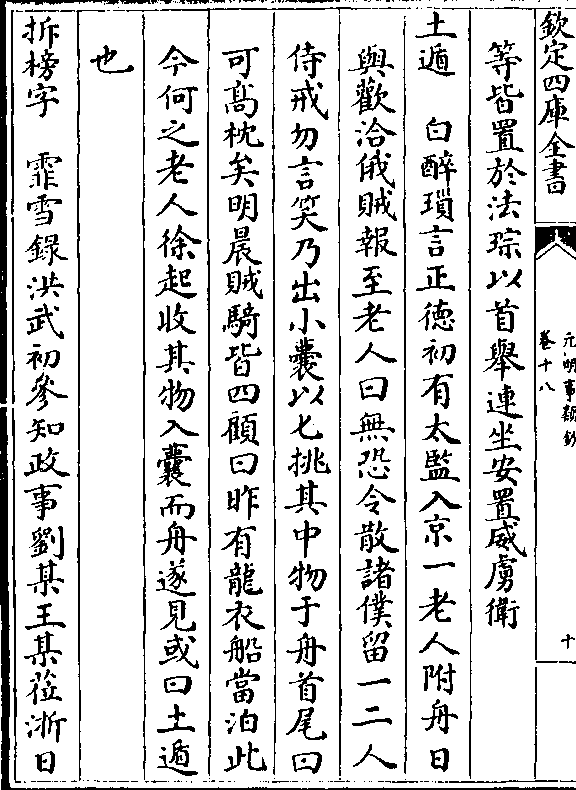 欽定四庫全書
元明事類鈔
卷十八
十
等皆置於法琮以首舉連坐安置威虜衛
土遁　白醉瑣言正德初有太監入京一老人附舟日
與歡洽俄賊報至老人曰無恐令散諸僕留一二人
侍戒勿言笑乃出小囊以匕挑其中物于舟首尾曰
可髙枕矣明晨賊騎皆四顧曰昨有龍衣船當泊此
今何之老人徐起收其物入囊而舟遂見或曰土遁
也
拆榜字　霏雪録洪武初參知政事劉某王某蒞浙日